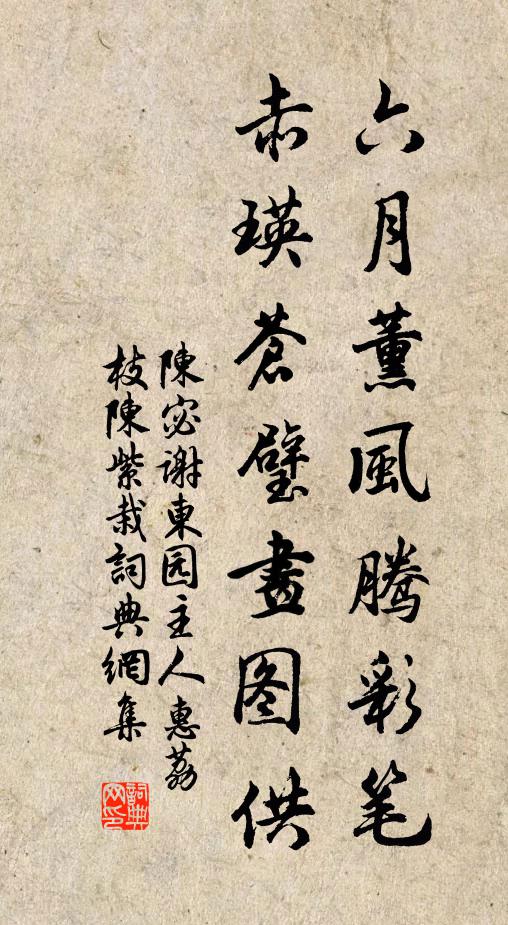 六月薰風腾彩笔
赤瑛蒼璧畫图供
陳宓谢東园主人惠荔
枝陳紫栽詞典網集
詞典
网印